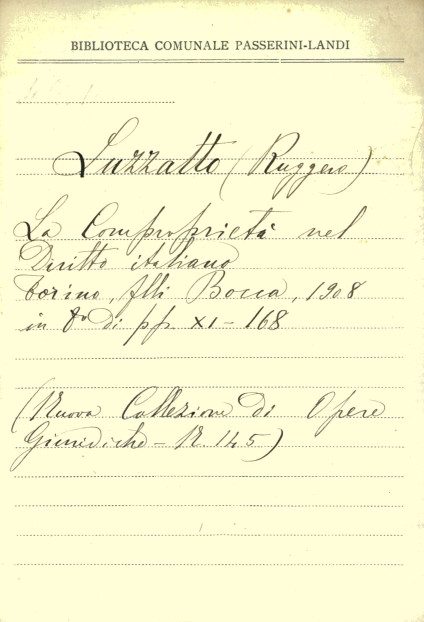 BIBLIOTECA COMUNALE PASSERINI-LANDI
Luzzatto (Ruggero)
La Comproprietà nel
Diritto italiano
Torino, flli Bocca, 1908
in 8º di pp. XI-168
(Nuova Collezione di Opere
Giuridiche - N. 145)